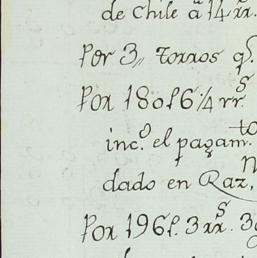 de Chile â 14 rr.
Por 3,, Torros q.
Por 180 l 6 1/4 rr.s
inc.o el pagam.to
dado en Raz,
Por 196 l. 3 rr.s 3